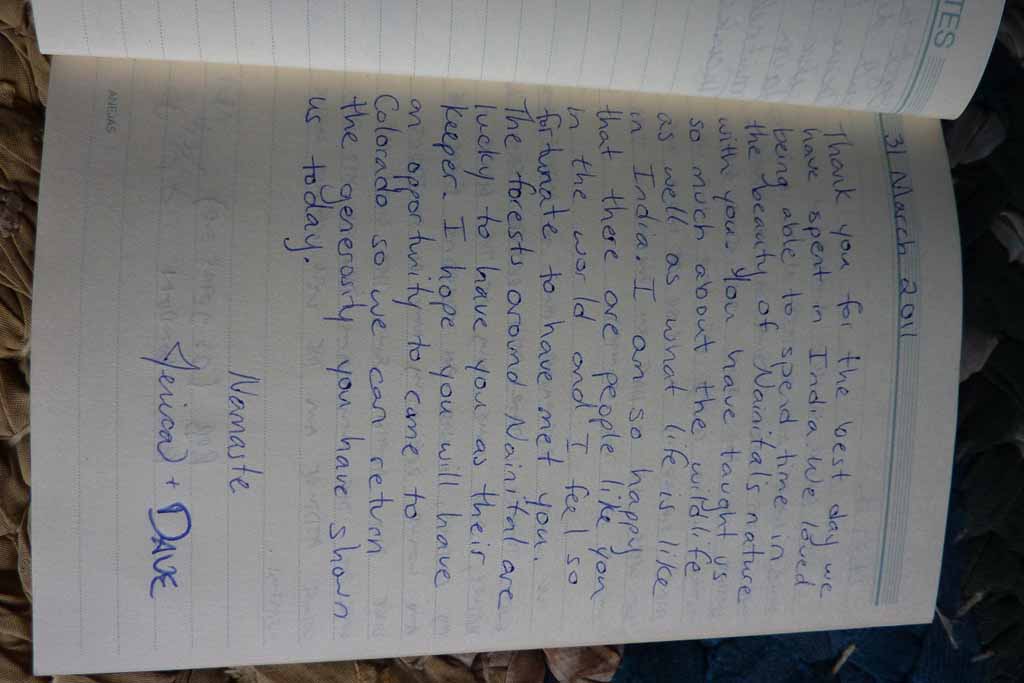 TES
31 March 2011
Thank you for the best day we
have spent in India. We loved
being able to spend time in
the beauty of Nainital's nature
with you. You have taught us
so much about the wildlife
as well as what life is like
in India. I am so happy
that there are people like you
in the world and I feel so
fortunate to have met you.
The forests around Nainital are
lucky to have you as their
keeper. I hope you will have
an opportunity to come to
Colorado so we can return
the generosity you have shown
us today.
Namaste
Jerica + DAVE